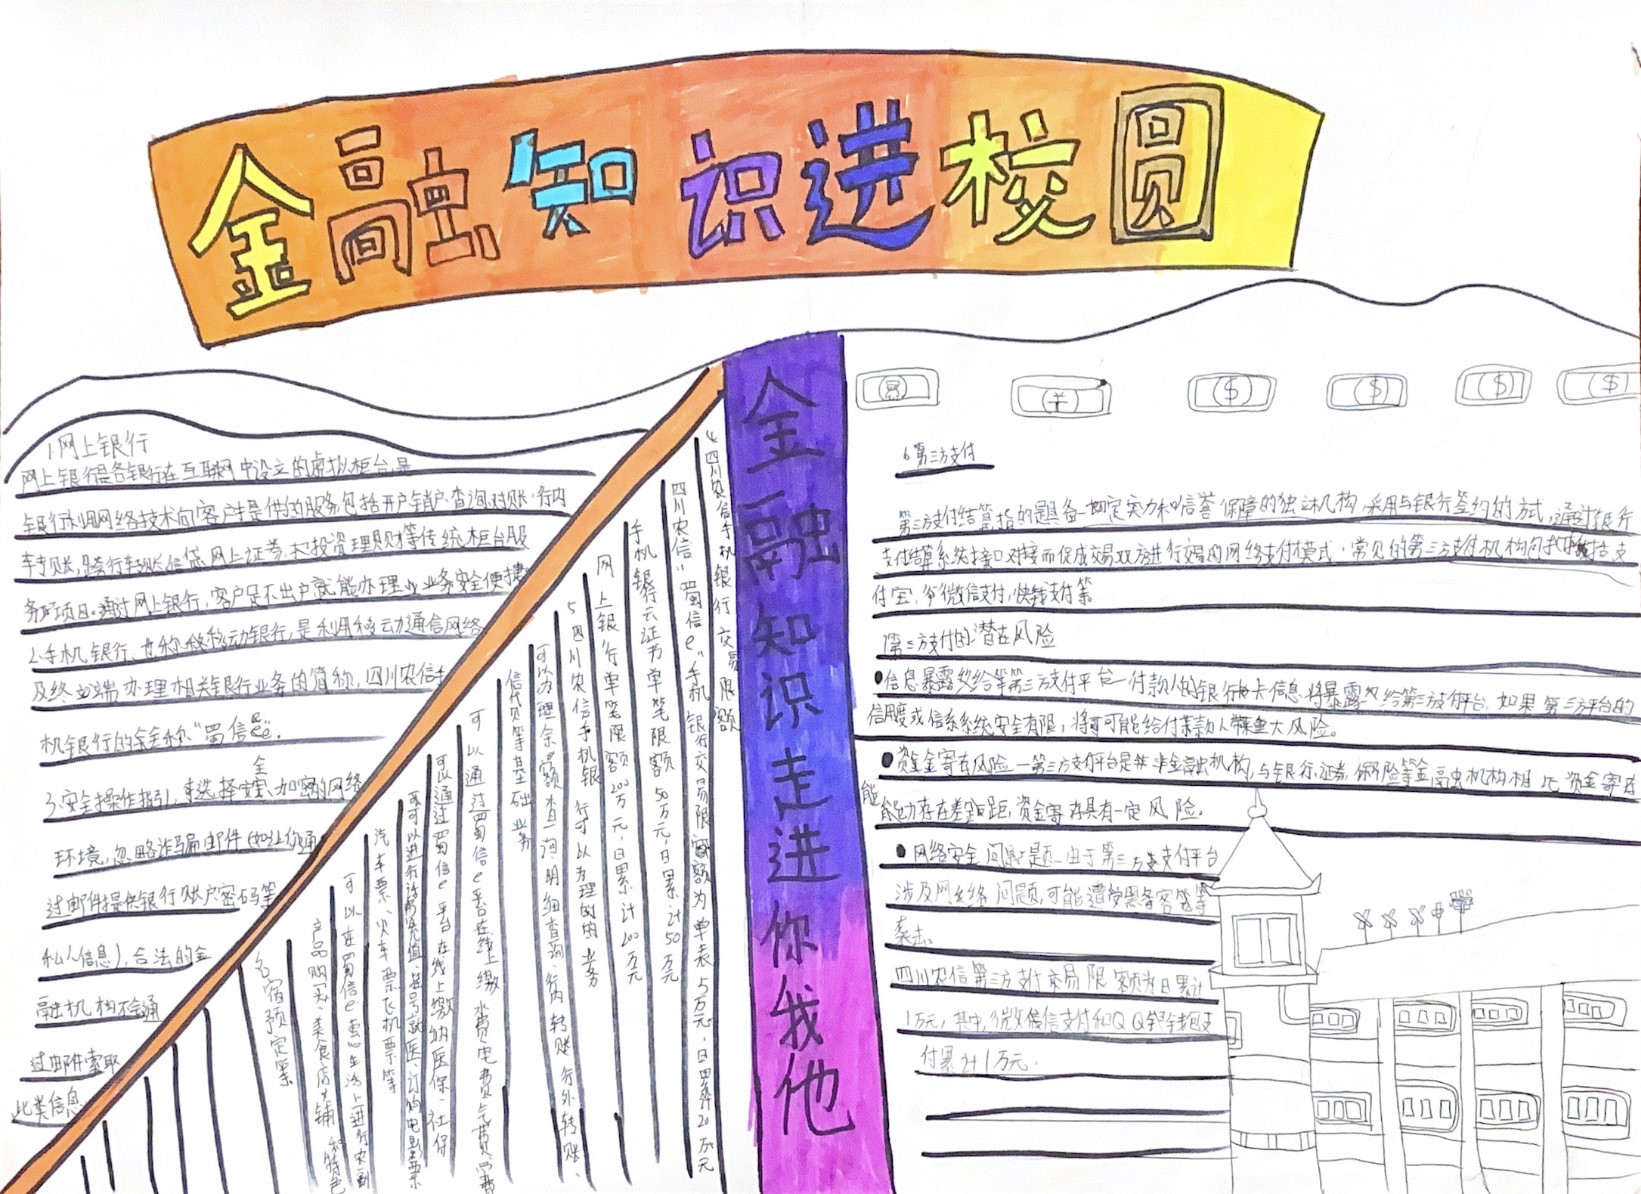 金融知识进校圆
1.网上银行
网上银行是各银行在互联网中设立的虚拟柜台,是
银行利用网络技术向客户提供的服务包括开户销户查询对账,行内
转账,跨行转账信贷,网上证券,投资理财等传统柜台服
务项目。通过网上银行,客户足不出户就能办理业业务安全便捷
2.手机银行、也称为移动银行,是利用移动通信网络
及终端办理相关银行业务的简称,四川农信手
机银行的全称"蜀信e".
3.安全操作指引,选择安全、加密的网络
环境,忽略诈骗邮件(如让你通
过邮件提供银行账户密码等
私人信息),合法的金
融机构不会通
过邮件索取
此类信息
4.四川农信手机银行交易限额
四川农信"蜀信e"手机银行交易限额为单表5万元,日累计20万元
手机银行云证书单笔限额50万元,日累计50万元
网上银行单笔限额200万元,日累计200万元
5.四川农信手机银行可以办理的业务
可以办理余额查询,明细查询,行内转账,行外转账、
信代贝等基础业务
可以通过蜀信e在线上缴水费电费气费,学费
可以通过蜀信e平台在线上缴纳医保、社保
可以进行话费充值,挂号就医、订购电影票
汽车票、火车票飞机票等
可以在蜀信e惠生活上进行农副
产品购买,美食店铺和特色
名宿预定票
金融知识走进你我他
6.第三方支付
第三方支付结算指的是具备一定实力和信誉保障的独立机构,采用与银行签约的方式,通过银行
支付结算系统接口对接而促成交易双方进行交易的网络支付模式,常见的第三方支付机构包括支
付宝,微信支付,快钱支付等
第三方支付的潜在风险
●信息暴露给第三方支付平台—付款人的银行卡信息将暴露给第三方平台,如果第三方平台的
信用度或信系统安全有限,将可能给付款人带来重大风险。
●资金寄存风险—第三方支付平台是非金融机构,与银行、证券、保险等金融机构相比资金寄存
能能力存在差距,资金寄存具有一定风险.
●网络安全问题—由于第三方支付平台
涉及网络问题,可能遭受黑客等
袭击.
四川农信第三方支付交易限额为日累计
1万元,其中,微信支付和QQ钱包支
付累计1万元.